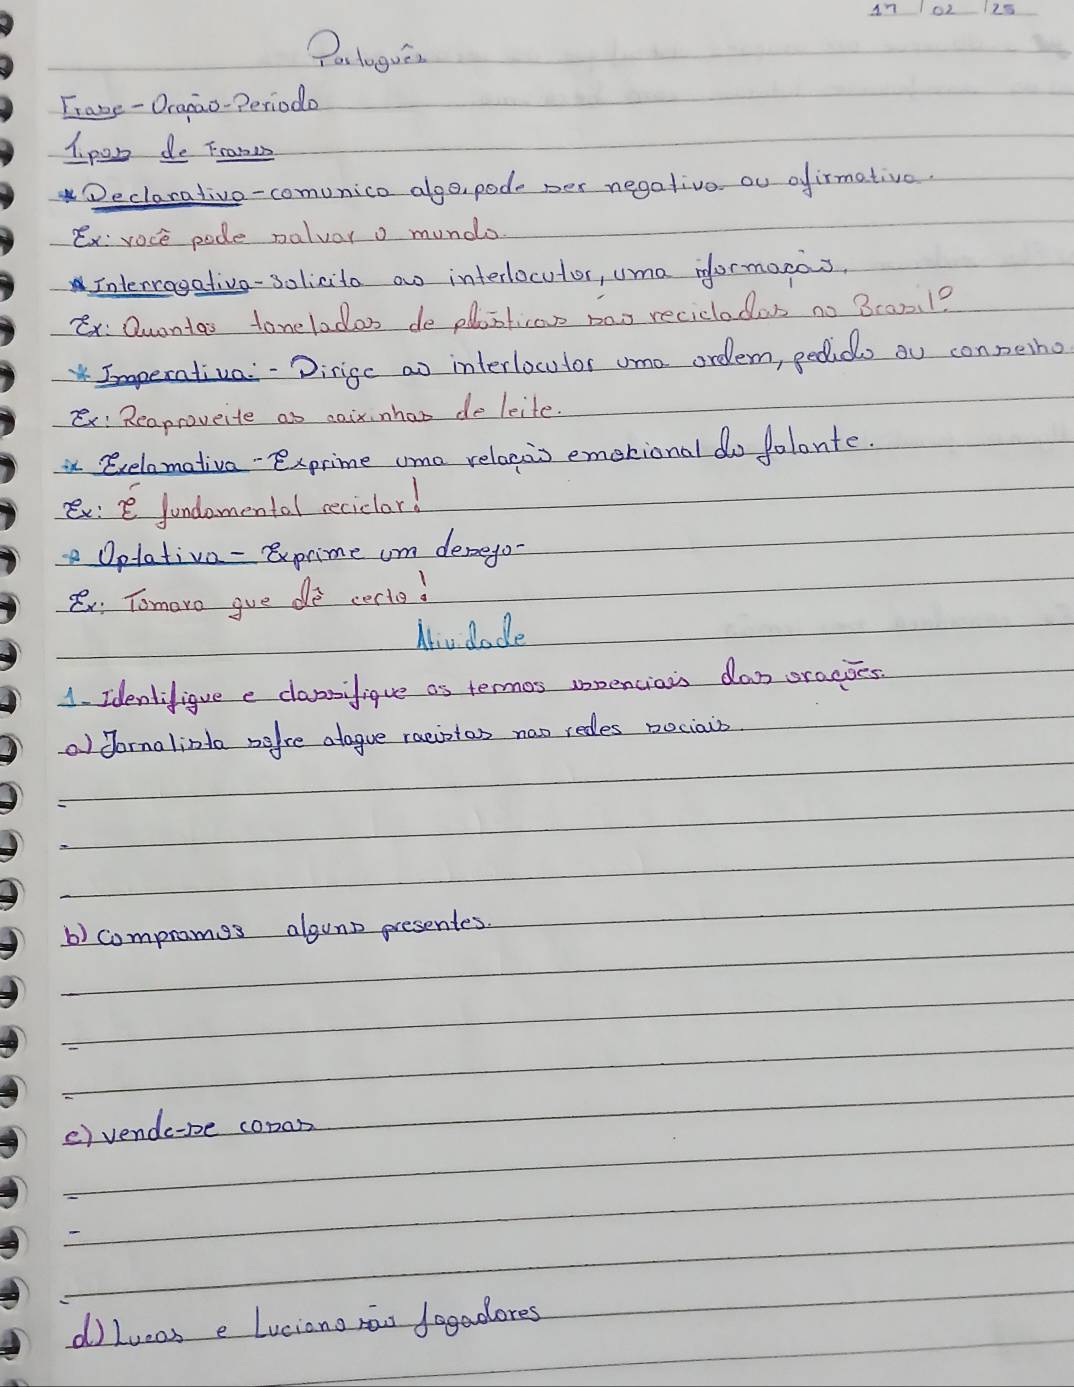 17/02/25
Português
Frase - Oração - Periodo
Tipos de Frases
* Declarativa - comunica algo, pode ser negativa ou afirmativa.
Ex: você pode salvar o mundo.
* Interrogativa - Solicita ao interlocutor, uma informação.
Ex: Quantas toneladas de plásticos são recicladas no Brasil?
* Imperativa: - Dirige ao interlocutor uma ordem, pedido ou conselho
Ex: Reaproveite as caixinhas de leite.
* Exclamativa - Exprime uma relação emokional do falante.
Ex: É fundamental reciclar!
* Optativa - Exprime um desejo-
Ex: Tomara que dê certo!
Atividade
1- Identifique e classifique os termos essenciais das orações.
a) Jornalista sofre ataque racistas nas redes sociais.
b) compramos alguns presentes.
c) vende-se casas
d) Lucas e Luciano são jogadores